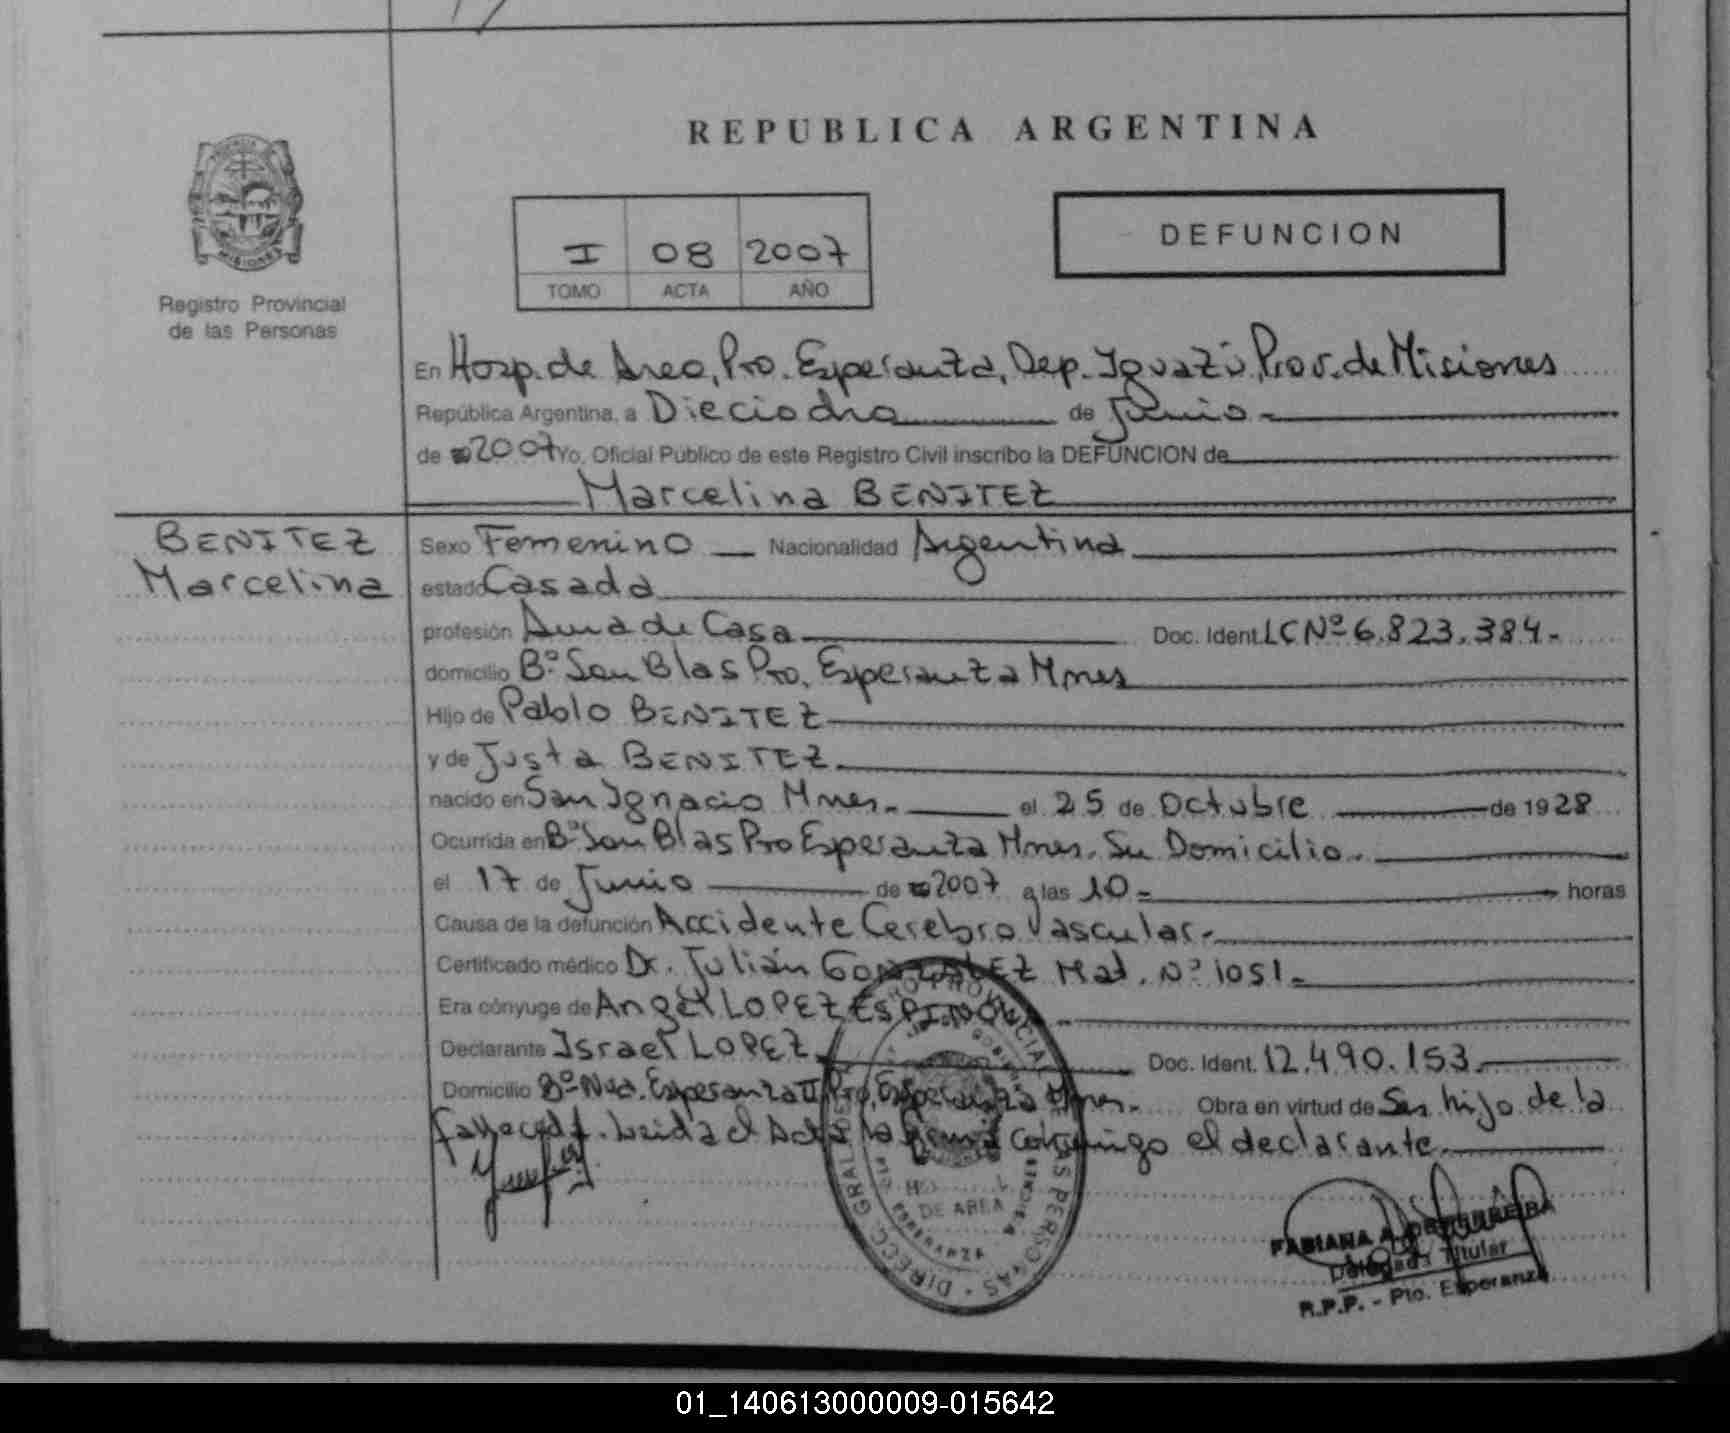 REPUBLICA ARGENTINA
MISIONES
Registro Provincial
de las Personas
I 08 2007
TOMO ACTA AÑO
DEFUNCION
En Hosp. de Area, Pto. Esperanza, Dep. Iguazú, Prov. de Misiones
República Argentina, a Dieciocho de Junio.-
de 2007 Yo, Oficial Público de este Registro Civil inscribo la DEFUNCION de
Marcelina BENITEZ
BENITEZ
Marcelina
Sexo Femenino Nacionalidad Argentina
estado Casada
profesión Ama de Casa Doc. Ident. LC Nº 6.823.384.-
domicilio Bº San Blas Pto. Esperanza Mnes
Hijo de Pablo BENITEZ
y de Justa BENITEZ.
nacido en San Ignacio Mnes.- el 25 de Octubre de 1928
Ocurrida en Bº San Blas Pto Esperanza Mnes. Su Domicilio.-
el 17 de Junio de 2007 a las 10.- horas
Causa de la defunción Accidente Cerebro Vascular.-
Certificado médico Dr. Julián GONZALEZ Mat. Nº 1051.-
Era cónyuge de Angel LOPEZ ESPINOLA
Declarante Israel LOPEZ Doc. Ident. 12.490.153.-
Domicilio Bº Nva. Esperanza II Pto. Esperanza Mnes.- Obra en virtud de Ser hijo de la
fallecida. Leida el Acta la firma conmigo el declarante.
DE AREA
ESPERANZA
FABIANA A. DE FERREIRA
Delegada Titular
R.P.P. - Pto. Esperanza
01_140613000009-015642